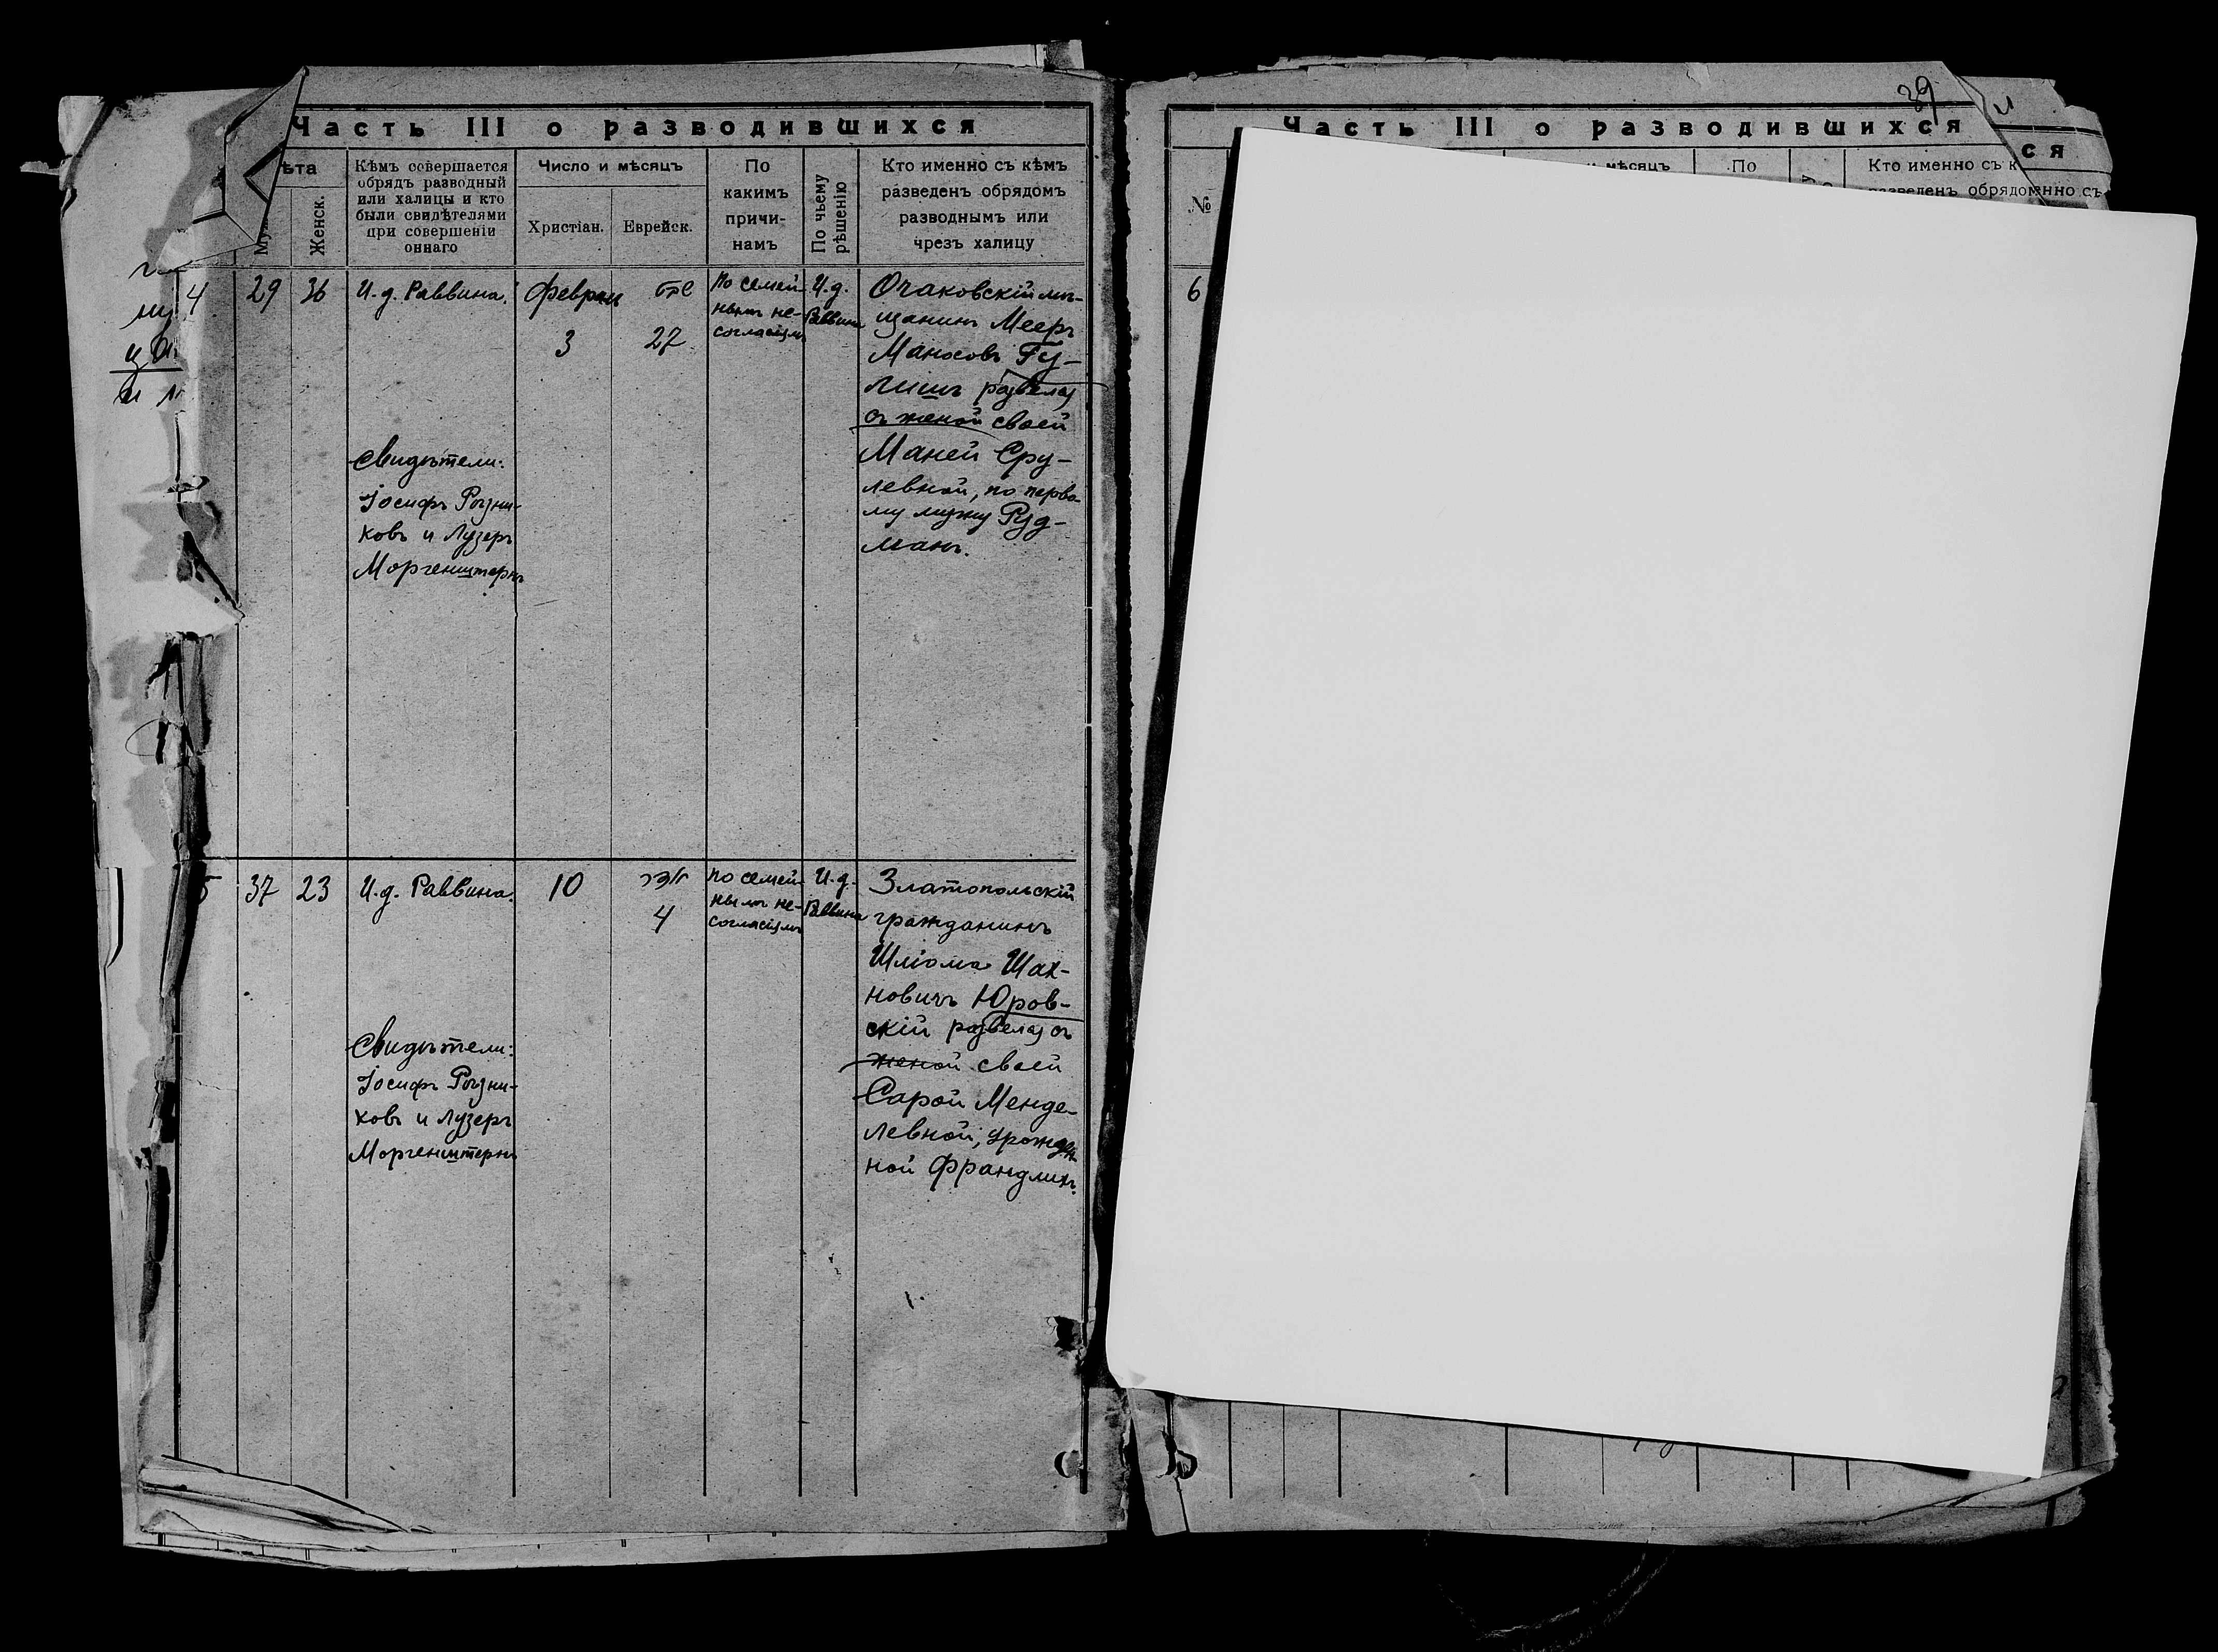 Часть III о разводившихся
ѣта
Женск.
Кѣмъ совершается
обрядъ разводный
или халицы и кто
были свидѣтелями
при совершеніи
оннаго
Число и мѣсяцъ
Христіан.
Еврейск.
По
какимъ
причи-
намъ
По чьему
рѣшенію
Кто именно съ кѣмъ
разведенъ обрядомъ
разводнымъ или
чрезъ халицу
4
29
36
И.д. Раввина.
Свидѣтели:
Іосифъ Рѣзни-
ковъ и Лузеръ
Моргенштернъ
3
27
По семей-
нымъ не-
согласіямъ
И.д.
Раввина
Очаковскій мѣ-
щанинъ Мееръ
Маносовъ Гу-
лишъ
съ женой своей
Маней Сру-
левной, по перво-
му мужу Руд-
манъ.
5
37
23
И.д. Раввина.
Свидѣтели:
Іосифъ Рѣзни-
ковъ и Лузеръ
Моргенштернъ
10
4
По семей-
нымъ не-
согласіямъ
И.д.
Раввина
Златопольскій
гражданинъ
Шліома Шах-
новичъ Юров-
скій съ
женой своей
Сарой Менде-
левной, урожден-
ной Франдлихъ.
39
Часть III о разводившихся
ся
№
мѣсяцъ
По
Кто именно съ к
обрядом
нно съ
6